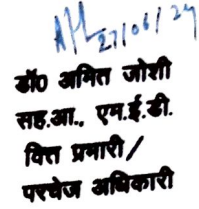 27/06/24
डॉ0 अमित जोशी
सह.आ., एम.ई.डी.
वित्त प्रभारी /
परचेज अधिकारी